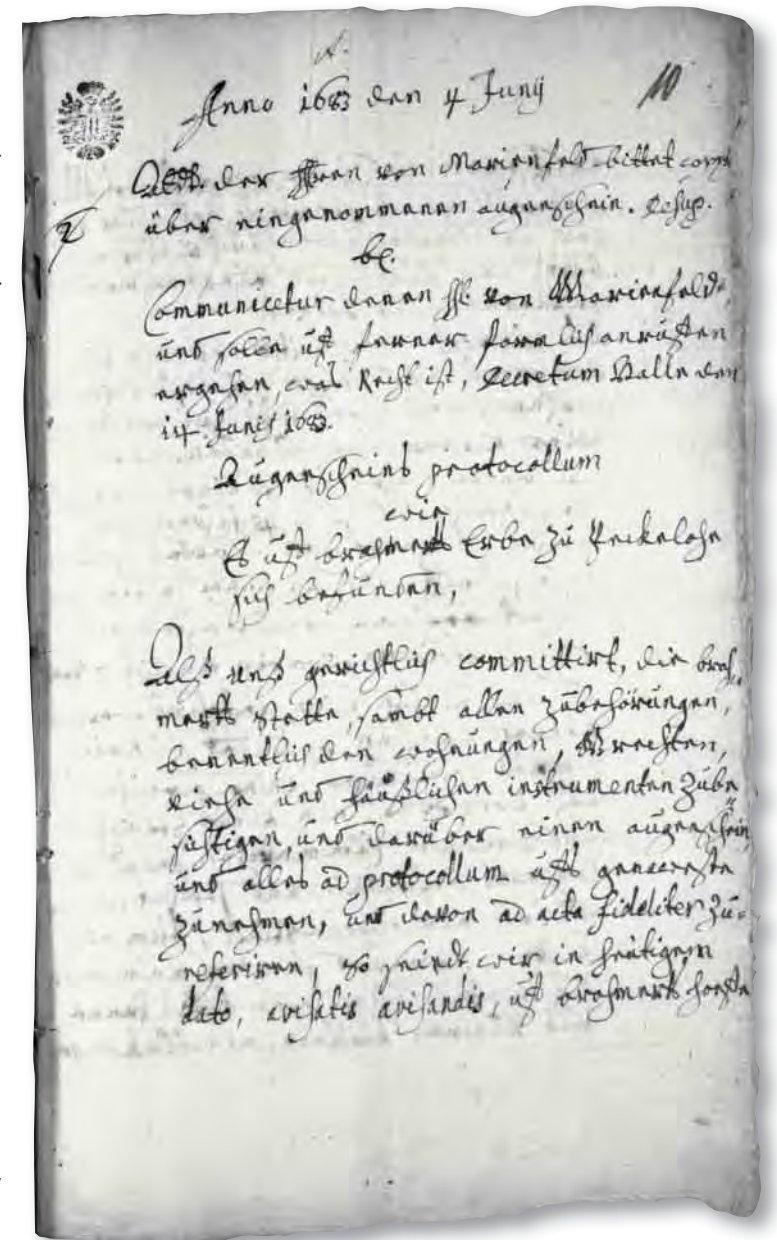 10
Anno 1683 den 4 Junij
der Hren von Marienfeld bittet
über eingenommenen augenschein. desup.
Communicetur denen HH. von Marienfeld,
und solle uff ferner förmlich anruffen
ergehen, was Recht ist, Decretum Halle den
14 Junij 1683.
Augenscheins protocollum
wie
Es uff brahmerts Erbe zu Peckelohe
sich befunden,
Alß unß gerichtlich committirt, die brah-
merts Stette, sambt allen zubehörungen,
benentlich den wohnungen,
viehe und häußlichen instrumenten zube
sichtigen, und darüber einen augenschein
und alles ad protocollum uffs genaweste
zunehmen, und davon ad acta fideliter zu-
referiren, so seindt wir in heutigem
dato, avisatis avisandis, uff brahmerts